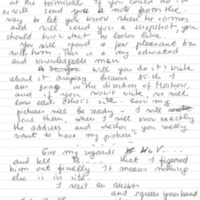 at the terminal. If you could do it
he will send you a note from the
way to let you know when he comes
and will send you a
should know what he looks like.
You will spend a few pleasant
with him. This is a very educated
and knowledgeable man.
will you do it? Write
about it anyway because 25-th I
am going in the direction of Moscow,
and if you won't write, we will
lose each other's
pictures will be ready - I will
send them, when I will know exactly
the address and whether you really
want to have my picture.
Give my regards
and tell that I figured
him out finally. It means nothing
else is in
I wait an answer
and your hand